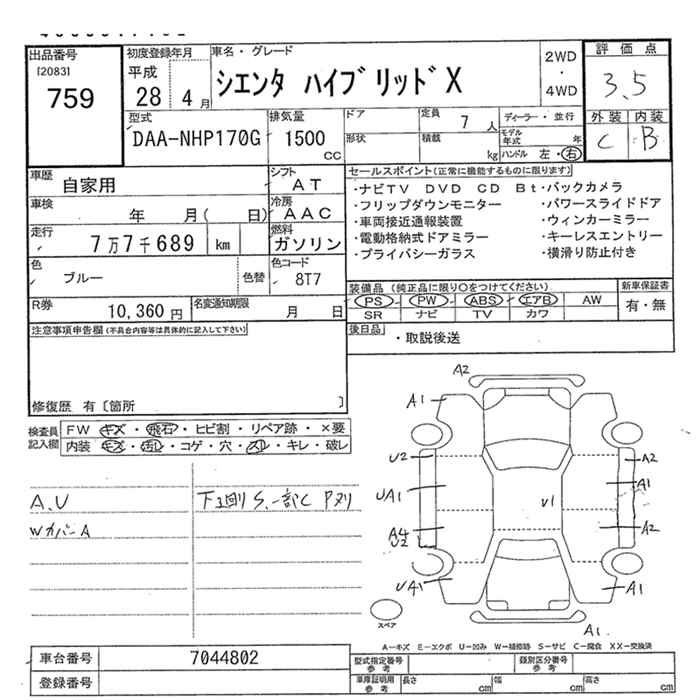 出品番号
[2083]
759
初度登録年月
平成
28 4 月
車名・グレード
シエンタ ハイブリッドX
2WD
・
4WD
評価点
3.5
外装 内装
C B
型式
DAA-NHP170G
排気量
1500
CC
ドア
形状
定員 7 人
積載 kg
ディーラー・並行
モデル年式 年
ハンドル 左・右
車歴 自家用
シフト
AT
車検 年 月( 日)
冷房
AAC
走行 7万7千689 km
燃料
ガソリン
色 ブルー 色替
色コード
8T7
R券 10,360 円
名変通知期限 月 日
セールスポイント(正常に機能するものに限ります)
・ナビTV DVD CD Bt・バックカメラ
・フリップダウンモニター ・パワースライドドア
・車両接近通報装置 ・ウィンカーミラー
・電動格納式ドアミラー ・キーレスエントリー
・プライバシーガラス ・横滑り防止付き
装備品(純正品に限り○をつけてください)
PS PW ABS エアB AW
SR ナビ TV カワ
新車保証書
有・無
後日品 ・取説後送
注意事項申告欄(不具合内容等は具体的に記入して下さい)
修復歴 有〔箇所 〕
検査員記入欄
FW キズ・飛石・ヒビ割・リペア跡・×要
内装 キズ・汚レ・コゲ・穴・スレ・キレ・破レ
A.U
Wカバー A
下廻りS.一部C Pヌリ
A2
A1
U2
UA1
A4
U2
UA1
U1
A2
A1
A2
A1
A1
スペア
A-キズ E-エクボ U-凹み W-補修跡 S-サビ C-腐食 XX-交換済
車台番号 7044802
登録番号
型式指定番号
参考
類別区分番号
参考
車庫証明用
参考
長さ cm 幅 cm 高さ cm